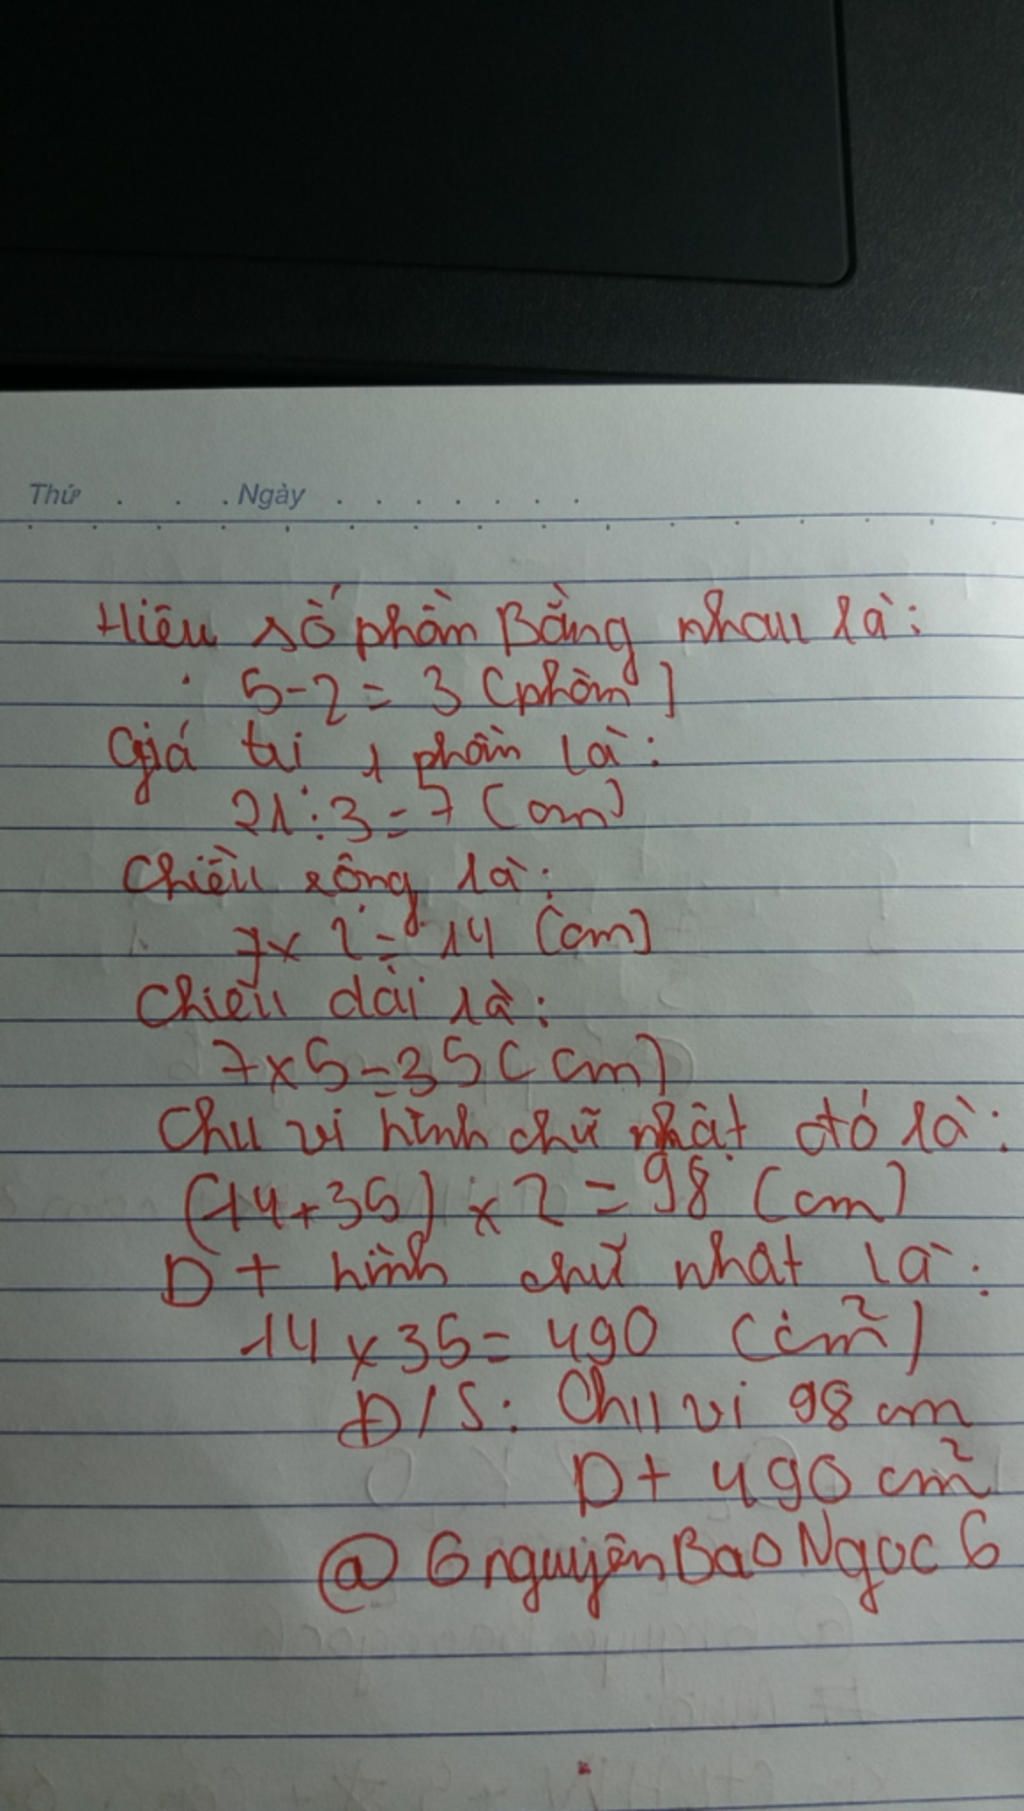 Thứ . . . Ngày . . . . . . . .
Hiệu số phần Bằng nhau là:
5-2 = 3 (phần)
Giá trị 1 phần là:
21:3 = 7 (cm)
Chiều rộng là:
7 x 2 = 14 (cm)
Chiều dài là:
7 x 5 = 35 (cm)
Chu vi hình chữ nhật đó là:
(14 + 35) x 2 = 98 (cm)
D + hình chữ nhât là:
14 x 35 = 490 (cm²)
Đ/S: Chu vi 98 cm
D + 490 cm²
@ 6nguyênBaoNgoc6